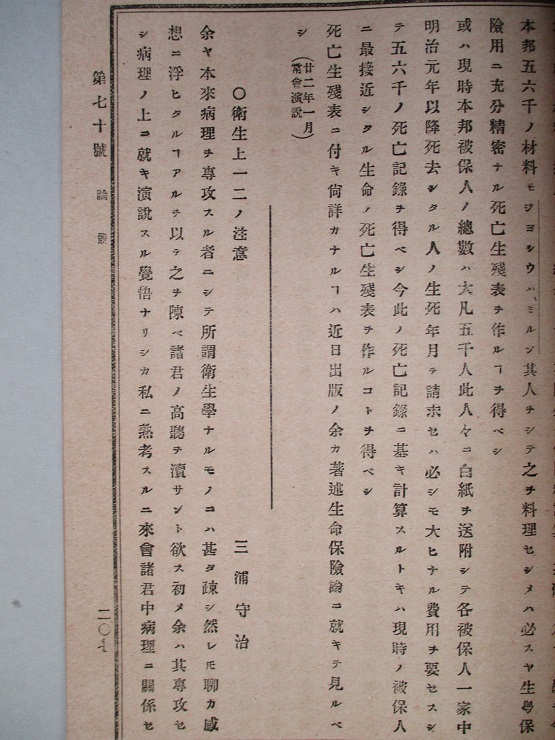 本邦五六千ノ材料モジヨシウハミルン其人チシテ之チ料理セシメハ必スヤ生命保
險用ニ充分精密ナル死亡生殘表ヲ作ルヿヲ得ベシ
或ハ現時本邦被保人ノ總數ハ大凡五千人此人々ニ白紙ヲ送附シテ各被保人一家中
明治元年以降死去シタル人ノ生死年月ヲ請求セハ必シモ大ヒナル費用ヲ要セスシ
テ五六千ノ死亡記錄ヲ得ベシ今此ノ死亡記錄ニ基キ計算スルトキハ現時ノ被保人
ニ最接近シタル生命ノ死亡生殘表ヲ作ルコトヲ得ベシ
死亡生殘表ニ付キ尙詳カナルヿハ近日出版ノ余カ著述生命保險論ニ就キテ見ルベ
シ(廿二年一月常會演說)
〇衛生上一二ノ注意
三浦守治
余ヤ本來病理ヲ專攻スル者ニシテ所謂衛生學ナルモノヿハ甚タ疎シ然レ𪜈聊カ感
想ニ浮ヒタルヿアルヲ以テ之ヲ陳ベ諸君ノ高聽ヲ瀆サント欲ス初メ余ハ其專攻セ
シ病理ノ上ニ就キ演說スル覺悟ナリシカ私ニ熟考スルニ來會諸君中病理ニ關係セ
第七十號 論說
二〇七